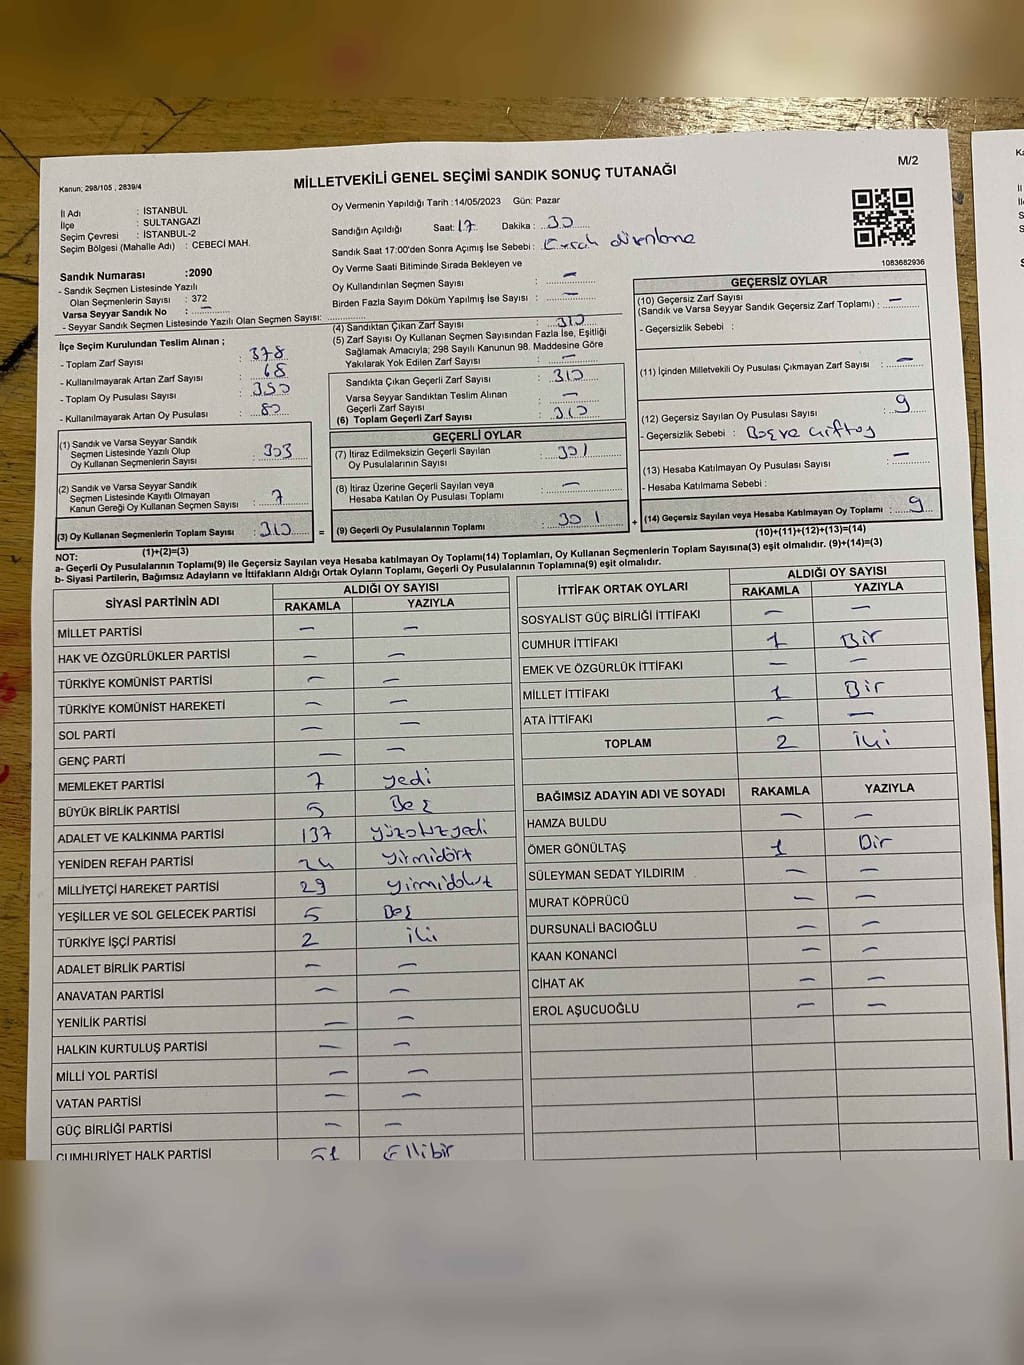 M/2
Kanun; 298/105 , 2839/4
MİLLETVEKİLİ GENEL SEÇİMİ SANDIK SONUÇ TUTANAĞI
İl Adı : İSTANBUL
İlçe : SULTANGAZİ
Seçim Çevresi : İSTANBUL-2
Seçim Bölgesi (Mahalle Adı) : CEBECİ MAH.
Oy Vermenin Yapıldığı Tarih :14/05/2023 Gün: Pazar
Sandığın Açıldığı Saat: 17 Dakika : 30
Sandık Saat 17:00'den Sonra Açımış İse Sebebi :
Oy Verme Saati Bitiminde Sırada Bekleyen ve
Oy Kullandırılan Seçmen Sayısı : —
Birden Fazla Sayım Döküm Yapılmış İse Sayısı : —
1083682936
Sandık Numarası :2090
- Sandık Seçmen Listesinde Yazılı
Olan Seçmenlerin Sayısı : 372
Varsa Seyyar Sandık No : —
- Seyyar Sandık Seçmen Listesinde Yazılı Olan Seçmen Sayısı:
İlçe Seçim Kurulundan Teslim Alınan ;
- Toplam Zarf Sayısı : 378
- Kullanılmayarak Artan Zarf Sayısı : 68
- Toplam Oy Pusulası Sayısı : 350
- Kullanılmayarak Artan Oy Pusulası : 80
(1) Sandık ve Varsa Seyyar Sandık
Seçmen Listesinde Yazılı Olup
Oy Kullanan Seçmenlerin Sayısı : 303
(2) Sandık ve Varsa Seyyar Sandık
Seçmen Listesinde Kayıtlı Olmayan
Kanun Gereği Oy Kullanan Seçmen Sayısı : 7
(3) Oy Kullanan Seçmenlerin Toplam Sayısı : 310 =
(1)+(2)=(3)
(4) Sandıktan Çıkan Zarf Sayısı : 310
(5) Zarf Sayısı Oy Kullanan Seçmen Sayısından Fazla İse, Eşitliği
Sağlamak Amacıyla; 298 Sayılı Kanunun 98. Maddesine Göre
Yakılarak Yok Edilen Zarf Sayısı : —
Sandıkta Çıkan Geçerli Zarf Sayısı : 310
Varsa Seyyar Sandıktan Teslim Alınan
Geçerli Zarf Sayısı : —
(6) Toplam Geçerli Zarf Sayısı : 310
GEÇERLİ OYLAR
(7) İtiraz Edilmeksizin Geçerli Sayılan
Oy Pusulalarının Sayısı : 301
(8) İtiraz Üzerine Geçerli Sayılan veya
Hesaba Katılan Oy Pusulası Toplamı : —
(9) Geçerli Oy Pusulalarının Toplamı : 301 +
GEÇERSİZ OYLAR
(10) Geçersiz Zarf Sayısı
(Sandık ve Varsa Seyyar Sandık Geçersiz Zarf Toplamı) : —
- Geçersizlik Sebebi :
(11) İçinden Milletvekili Oy Pusulası Çıkmayan Zarf Sayısı : —
(12) Geçersiz Sayılan Oy Pusulası Sayısı : 9
- Geçersizlik Sebebi :
(13) Hesaba Katılmayan Oy Pusulası Sayısı : —
- Hesaba Katılmama Sebebi :
(14) Geçersiz Sayılan veya Hesaba Katılmayan Oy Toplamı : 9
(10)+(11)+(12)+(13)=(14)
NOT:
a- Geçerli Oy Pusulalarının Toplamı(9) ile Geçersiz Sayılan veya Hesaba katılmayan Oy Toplamı(14) Toplamları, Oy Kullanan Seçmenlerin Toplam Sayısına(3) eşit olmalıdır. (9)+(14)=(3)
b- Siyasi Partilerin, Bağımsız Adayların ve İttifakların Aldığı Ortak Oyların Toplamı, Geçerli Oy Pusulalarının Toplamına(9) eşit olmalıdır.
SİYASİ PARTİNİN ADI ALDIĞI OY SAYISI
RAKAMLA YAZIYLA
MİLLET PARTİSİ — —
HAK VE ÖZGÜRLÜKLER PARTİSİ — —
TÜRKİYE KOMÜNİST PARTİSİ — —
TÜRKİYE KOMÜNİST HAREKETİ — —
SOL PARTİ — —
GENÇ PARTİ — —
MEMLEKET PARTİSİ 7 yedi
BÜYÜK BİRLİK PARTİSİ 5 Beş
ADALET VE KALKINMA PARTİSİ 137 yüzotuzyedi
YENİDEN REFAH PARTİSİ 24 yirmidört
MİLLİYETÇİ HAREKET PARTİSİ 29 yirmidokuz
YEŞİLLER VE SOL GELECEK PARTİSİ 5 Beş
TÜRKİYE İŞÇİ PARTİSİ 2 iki
ADALET BİRLİK PARTİSİ — —
ANAVATAN PARTİSİ — —
YENİLİK PARTİSİ — —
HALKIN KURTULUŞ PARTİSİ — —
MİLLİ YOL PARTİSİ — —
VATAN PARTİSİ — —
GÜÇ BİRLİĞİ PARTİSİ — —
CUMHURİYET HALK PARTİSİ 51 Ellibir
İTTİFAK ORTAK OYLARI ALDIĞI OY SAYISI
RAKAMLA YAZIYLA
SOSYALİST GÜÇ BİRLİĞİ İTTİFAKI — —
CUMHUR İTTİFAKI 1 Bir
EMEK VE ÖZGÜRLÜK İTTİFAKI — —
MİLLET İTTİFAKI 1 Bir
ATA İTTİFAKI — —
TOPLAM 2 iki
BAĞIMSIZ ADAYIN ADI VE SOYADI RAKAMLA YAZIYLA
HAMZA BULDU — —
ÖMER GÖNÜLTAŞ 1 Bir
SÜLEYMAN SEDAT YILDIRIM — —
MURAT KÖPRÜCÜ — —
DURSUNALİ BACIOĞLU — —
KAAN KONANCİ — —
CİHAT AK — —
EROL AŞUCUOĞLU — —